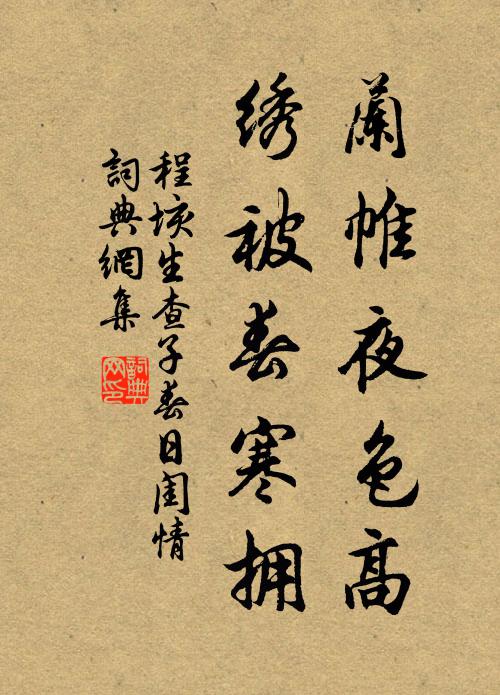 蘭帷夜色高
绣被春寒拥
程垓生查子春日闺情
詞典網集
詞典网印